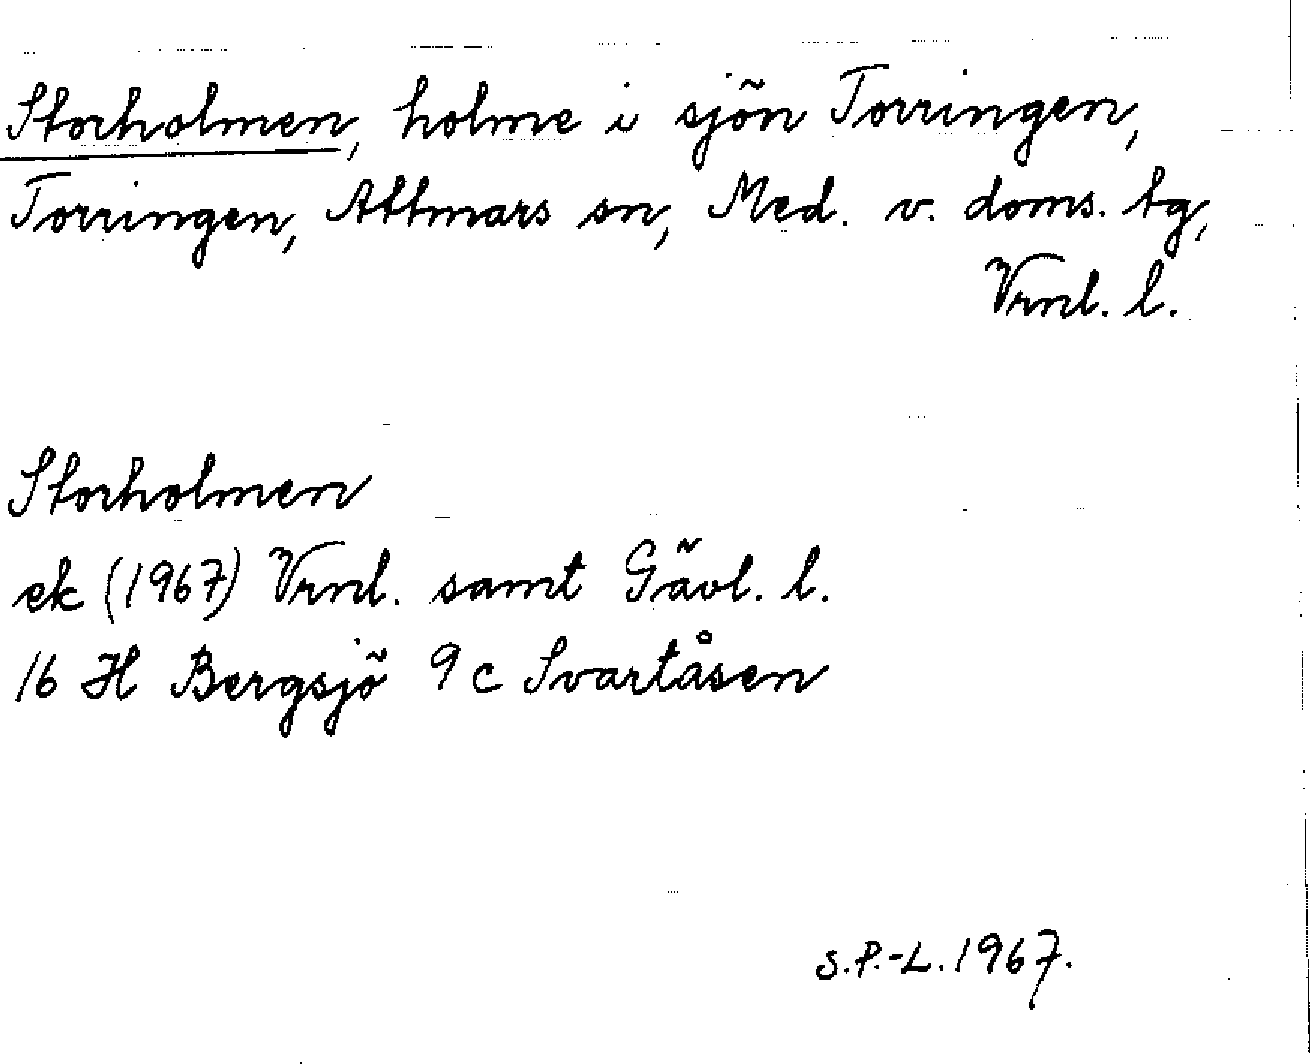 Storholmen, holme i sjön Torringen,
Torringen, Attmars sn, Med. v. doms. tg,
Vrnl. l.
Storholmen
ek (1967) Vrnl. samt Gävl. l.
16 H Bergsjö 9 c Svartåsen
S.P.-L. 1967.